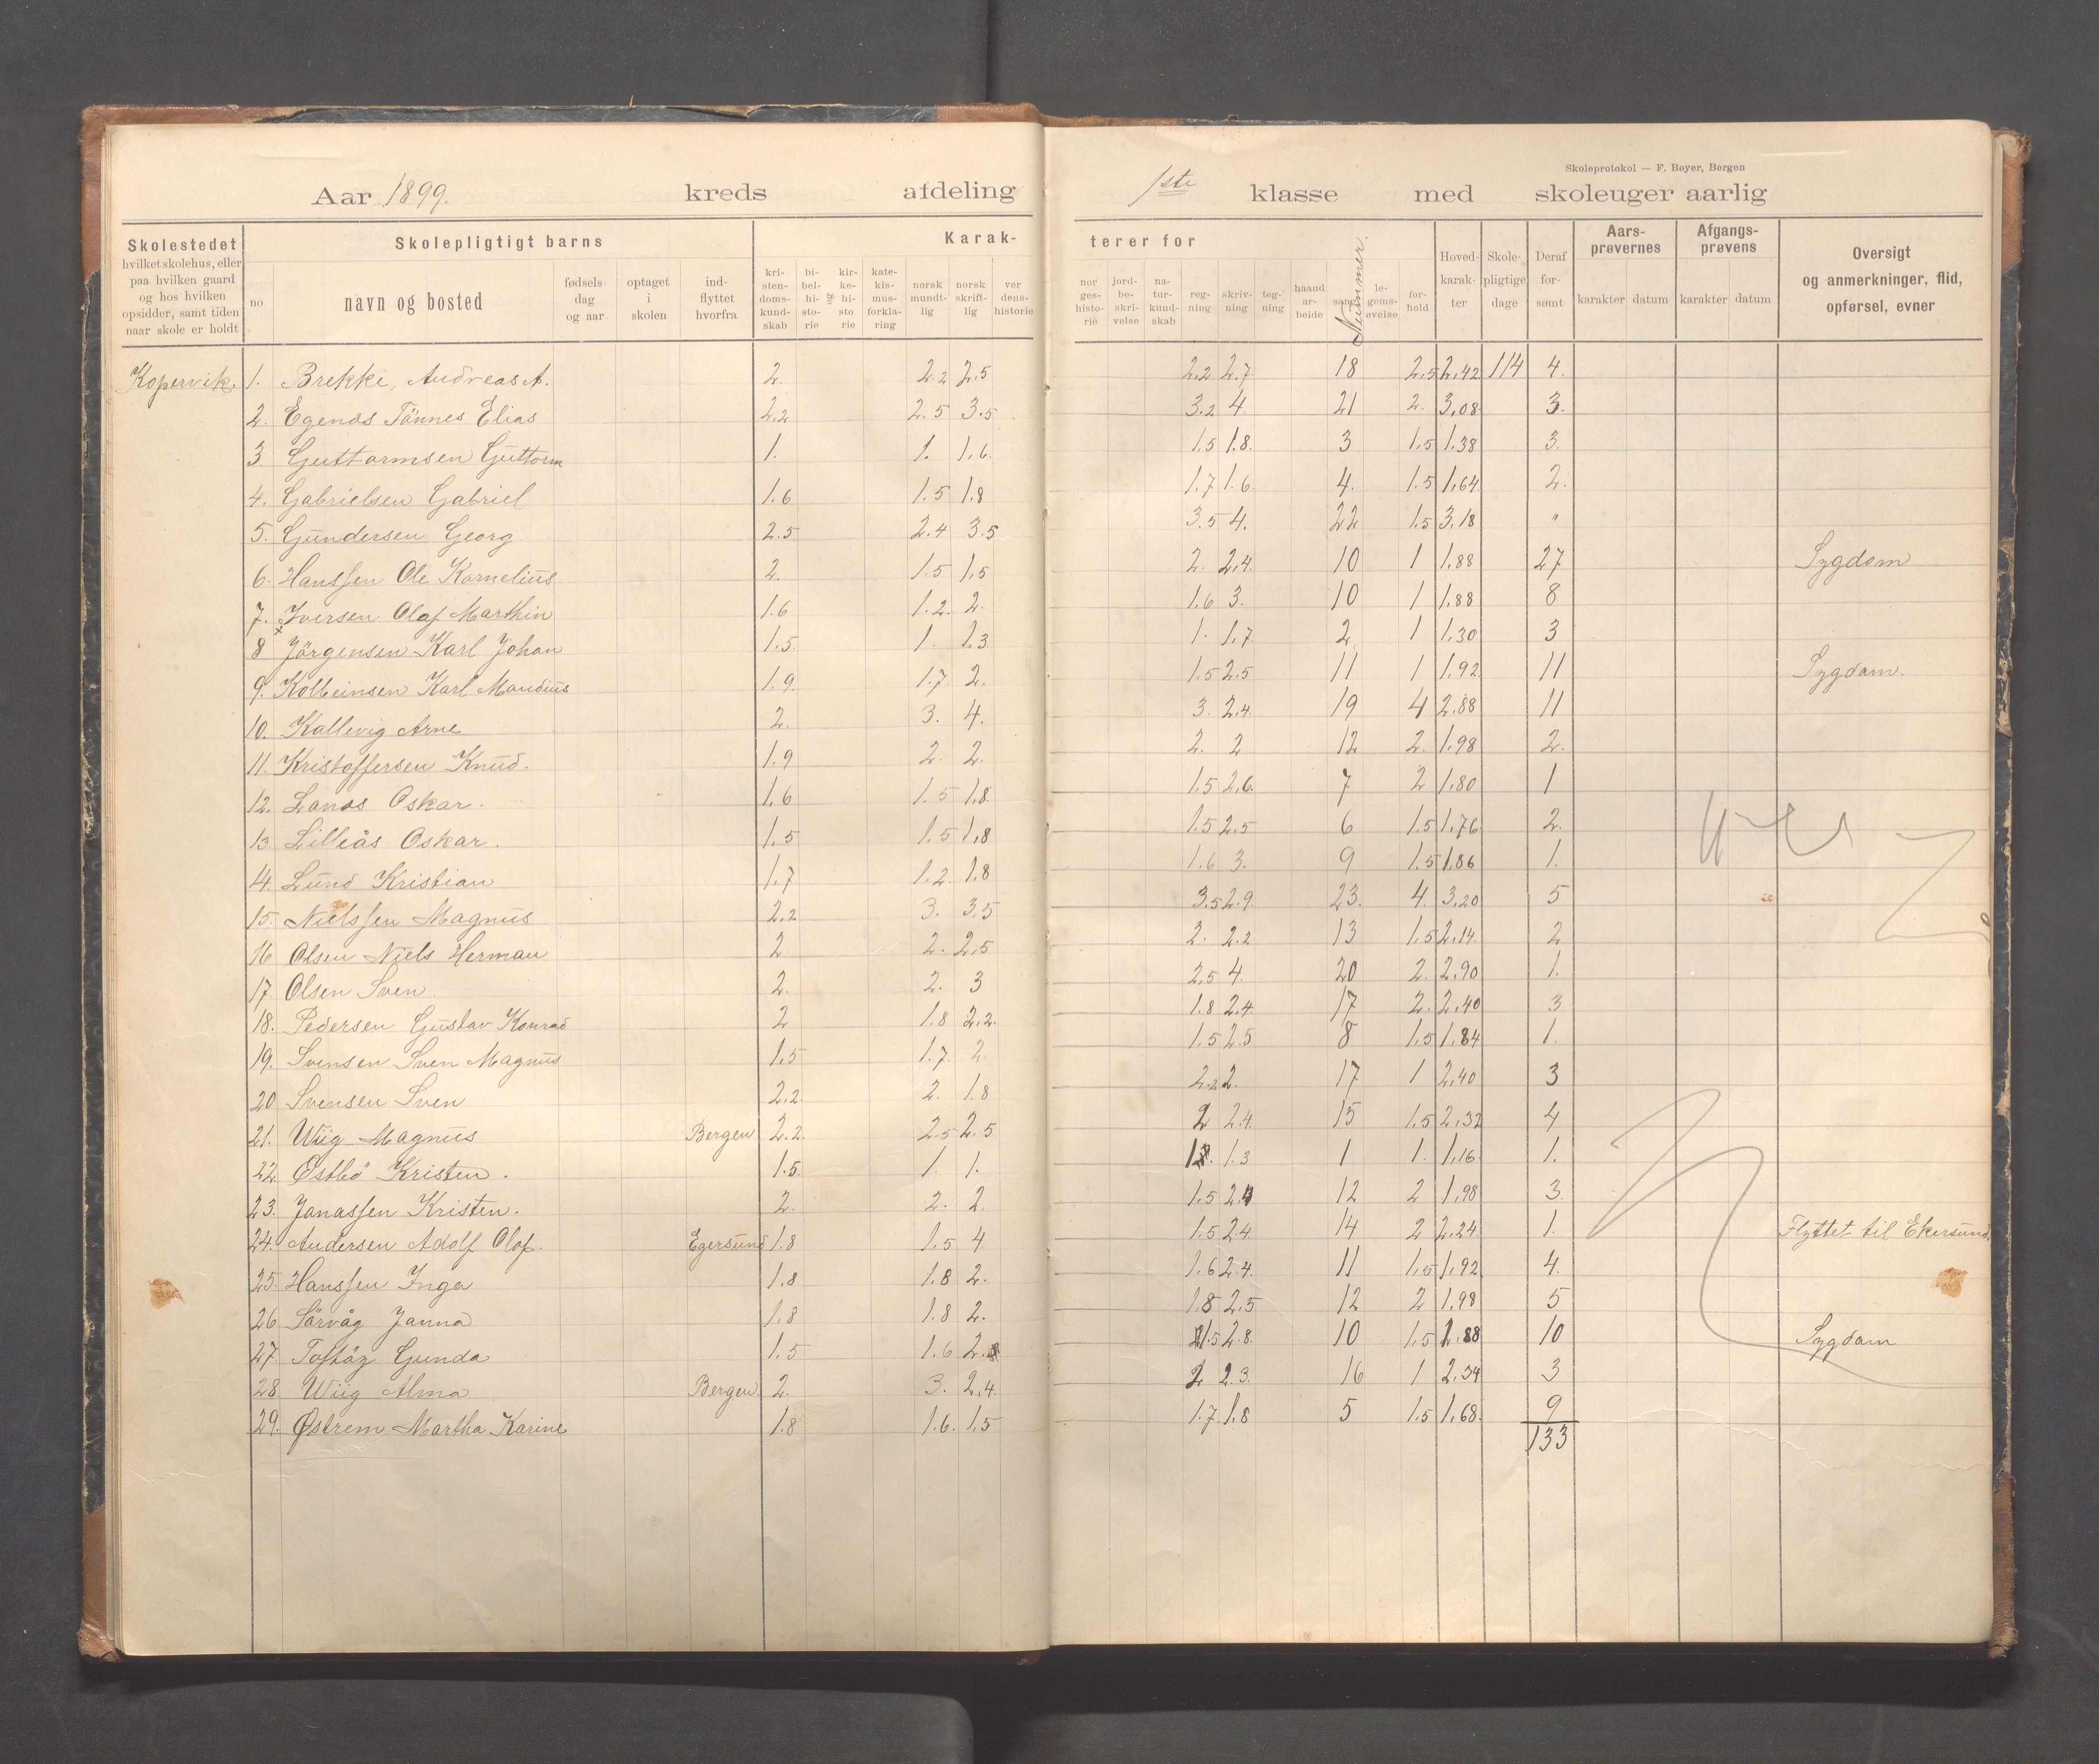 Skoleprotokol — F. Beyer, Bergen
Aar 1899. kreds afdeling 1ste klasse med skoleuger aarlig
Skolestedet hvilket skolehus, eller paa hvilken gaard og hos hvilken opsidder, samt tiden naar skole er holdt
Skolepligtigt barns
no. navn og bosted fødselsdag og aar optaget i skolen indflyttet hvorfra
Karakterer for
kristendomskundskab bibelhistorie og kirkehistorie katekismusforklaring norsk mundtlig norsk skriftlig verdenshistorie
norgeshistorie jordbeskrivelse naturkundskab regning skrivning tegning haandarbeide sang Nummer. legemsøvelse forhold
Hovedkarakter Skolepligtige dage Deraf forsømt
Aarsprøvernes karakter datum
Afgangsprøvens karakter datum
Oversigt og anmerkninger, flid, opførsel, evner
Kopervik. 1. Brekke, Andreas A. 2. 2.2 2.5 2.2 2.7. 18 2.5 2,42 114 4.
2. Egenæs Tönnes Elias 2.2 2.5 3.5 3.2 4. 21 2. 3,08 3.
3 Guttormsen Guttorm 1. 1. 1.6. 1.5 1.8. 3 1.5 1.38 3.
4. Gabrielsen Gabriel 1.6 1.5 1.8 1.7 1.6 4. 1.5 1,64 2.
5. Gundersen Georg 2.5 2.4 3.5 3.5 4. 22 1.5 3.18 "
6. Hanssen Ole Kornelius 2. 1.5 1.5 2. 2.4. 10 1 1.88 27 Sygdom
7. Iversen Olaf Marthin 1.6 1.2. 2. 1.6 3. 10 1 1.88 8
8 Jörgensen Karl Johan 1.5 1. 1.3 1. 1.7 2 1 1.30 3
9. Kolbeinsen Karl Mandius 1.9. 1.7. 2. 1.5 2.5 11 1 1,92 11 Sygdom.
10. Kallevig Arne 2. 3. 4. 3. 2.4. 19 4 2.88 11
11. Kristoffersen Knud. 1.9 2. 2. 2. 2 12 2. 1.98 2.
12. Lanæs Oskar. 1.6 1.5 1.8 1.5 2.6. 7 2 1.80 1
13. Lilleås Oskar. 1.5 1.5 1.8 1.5 2.5 6 1.5 1,76 2.
4. Lund Kristian 1.7 1.2. 1.8 1.6 3. 9 1.5 1.86 1.
15. Nielssen Magnus 2.2 3. 3.5 3.5 2.9. 23. 4. 3,20 5
16 Olsen Niels Herman 2. 2. 2.5 2. 2.2 13 1.5 2.14. 2
17 Olsen Sven 2. 2. 3 2.5 4. 20 2. 2.90 1.
18. Pedersen Gustav Konrad 2 1.8 2.2. 1.8 2.4. 17 2. 2,40 3
19. Svensen Sven Magnus 1.5 1.7. 2. 1.5 2.5 8 1.5 1.84 1.
20 Svensen Sven 2.2. 2. 1.8 2.2 2. 17 1 2,40 3
21. Wiig Magnus Bergen 2.2. 2.5 2.5 2 2.4. 15 1.5 2,32 4
22. Östbö Kristen. 1.5. 1. 1. 1.3 1 1. 1,16. 1.
23. Jonassen Kristen. 2. 2. 2. 1.5 12 2 1,98 3
24. Andersen Adolf Olof. Egersund 1.8 1.5 4 1.5 2.4 14 2 2.24 1. Flyttet til Ekersund.
25. Hanssen Inga 1.8 1.8 2. 1.6 2.4. 11 1.5 1,92 4.
26 Sörvåg Janna 1.8 1.8 2. 1.8 2.5 12 2 1.98 5
27 Toftöy Gunda 1.5 1.6 2. 1.5 2.8. 10 1.5 1.88 10 Sygdom
28 Wiig Alma Bergen. 2. 3. 2.4. 2 2.3. 16 1 2.34 3
29. Østrem Martha Karine 1.8 1.6. 1.5 1.7. 1.8 5 1.5 1,68. 9
133